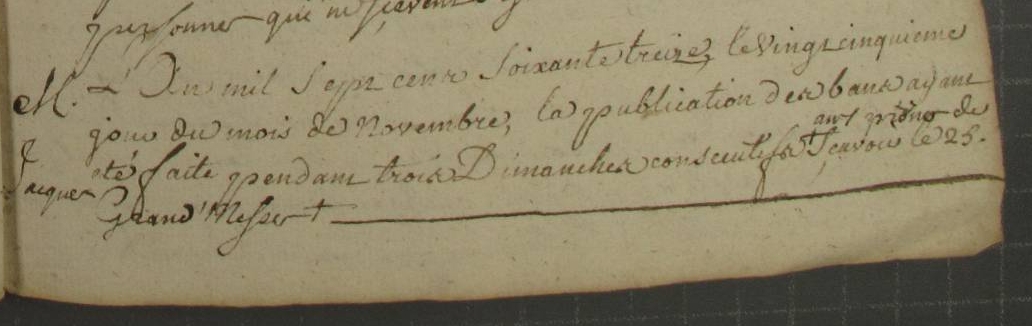 personnes qui ne sçavent
M. L'An mil Sept cens Soixante treize, le vingt cinquieme
jour du mois de Novembre, la publication des bans ayant
aux prônes de
Jacques été faite pendant trois Dimanches consecutifs + Sçavoir le 25.
Grand' Messes +